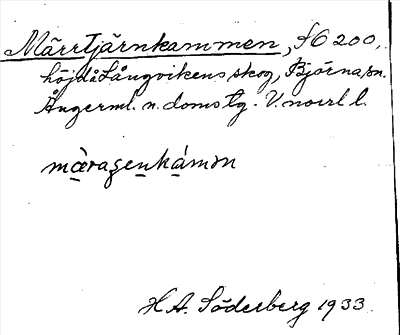 Märrtjärnkammen, f6 200,
höjd å Långvikens skog, Björna sn.
Ångerml. n. doms tg. V.norrl l.
mæ̀raʒenkámən
H.A. Söderberg 1933.